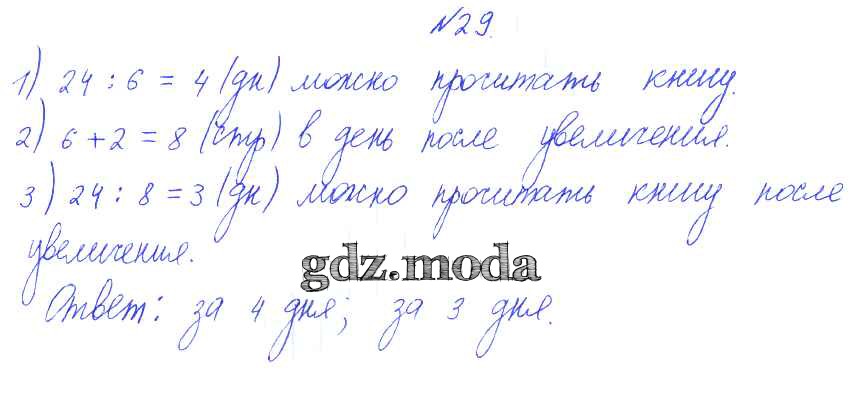 №29.
1) 24 : 6 = 4 (дн) можно прочитать книгу.
2) 6 + 2 = 8 (стр) в день после увеличения.
3) 24 : 8 = 3 (дн) можно прочитать книгу после
увеличения.
gdz.moda
Ответ: за 4 дня; за 3 дня.